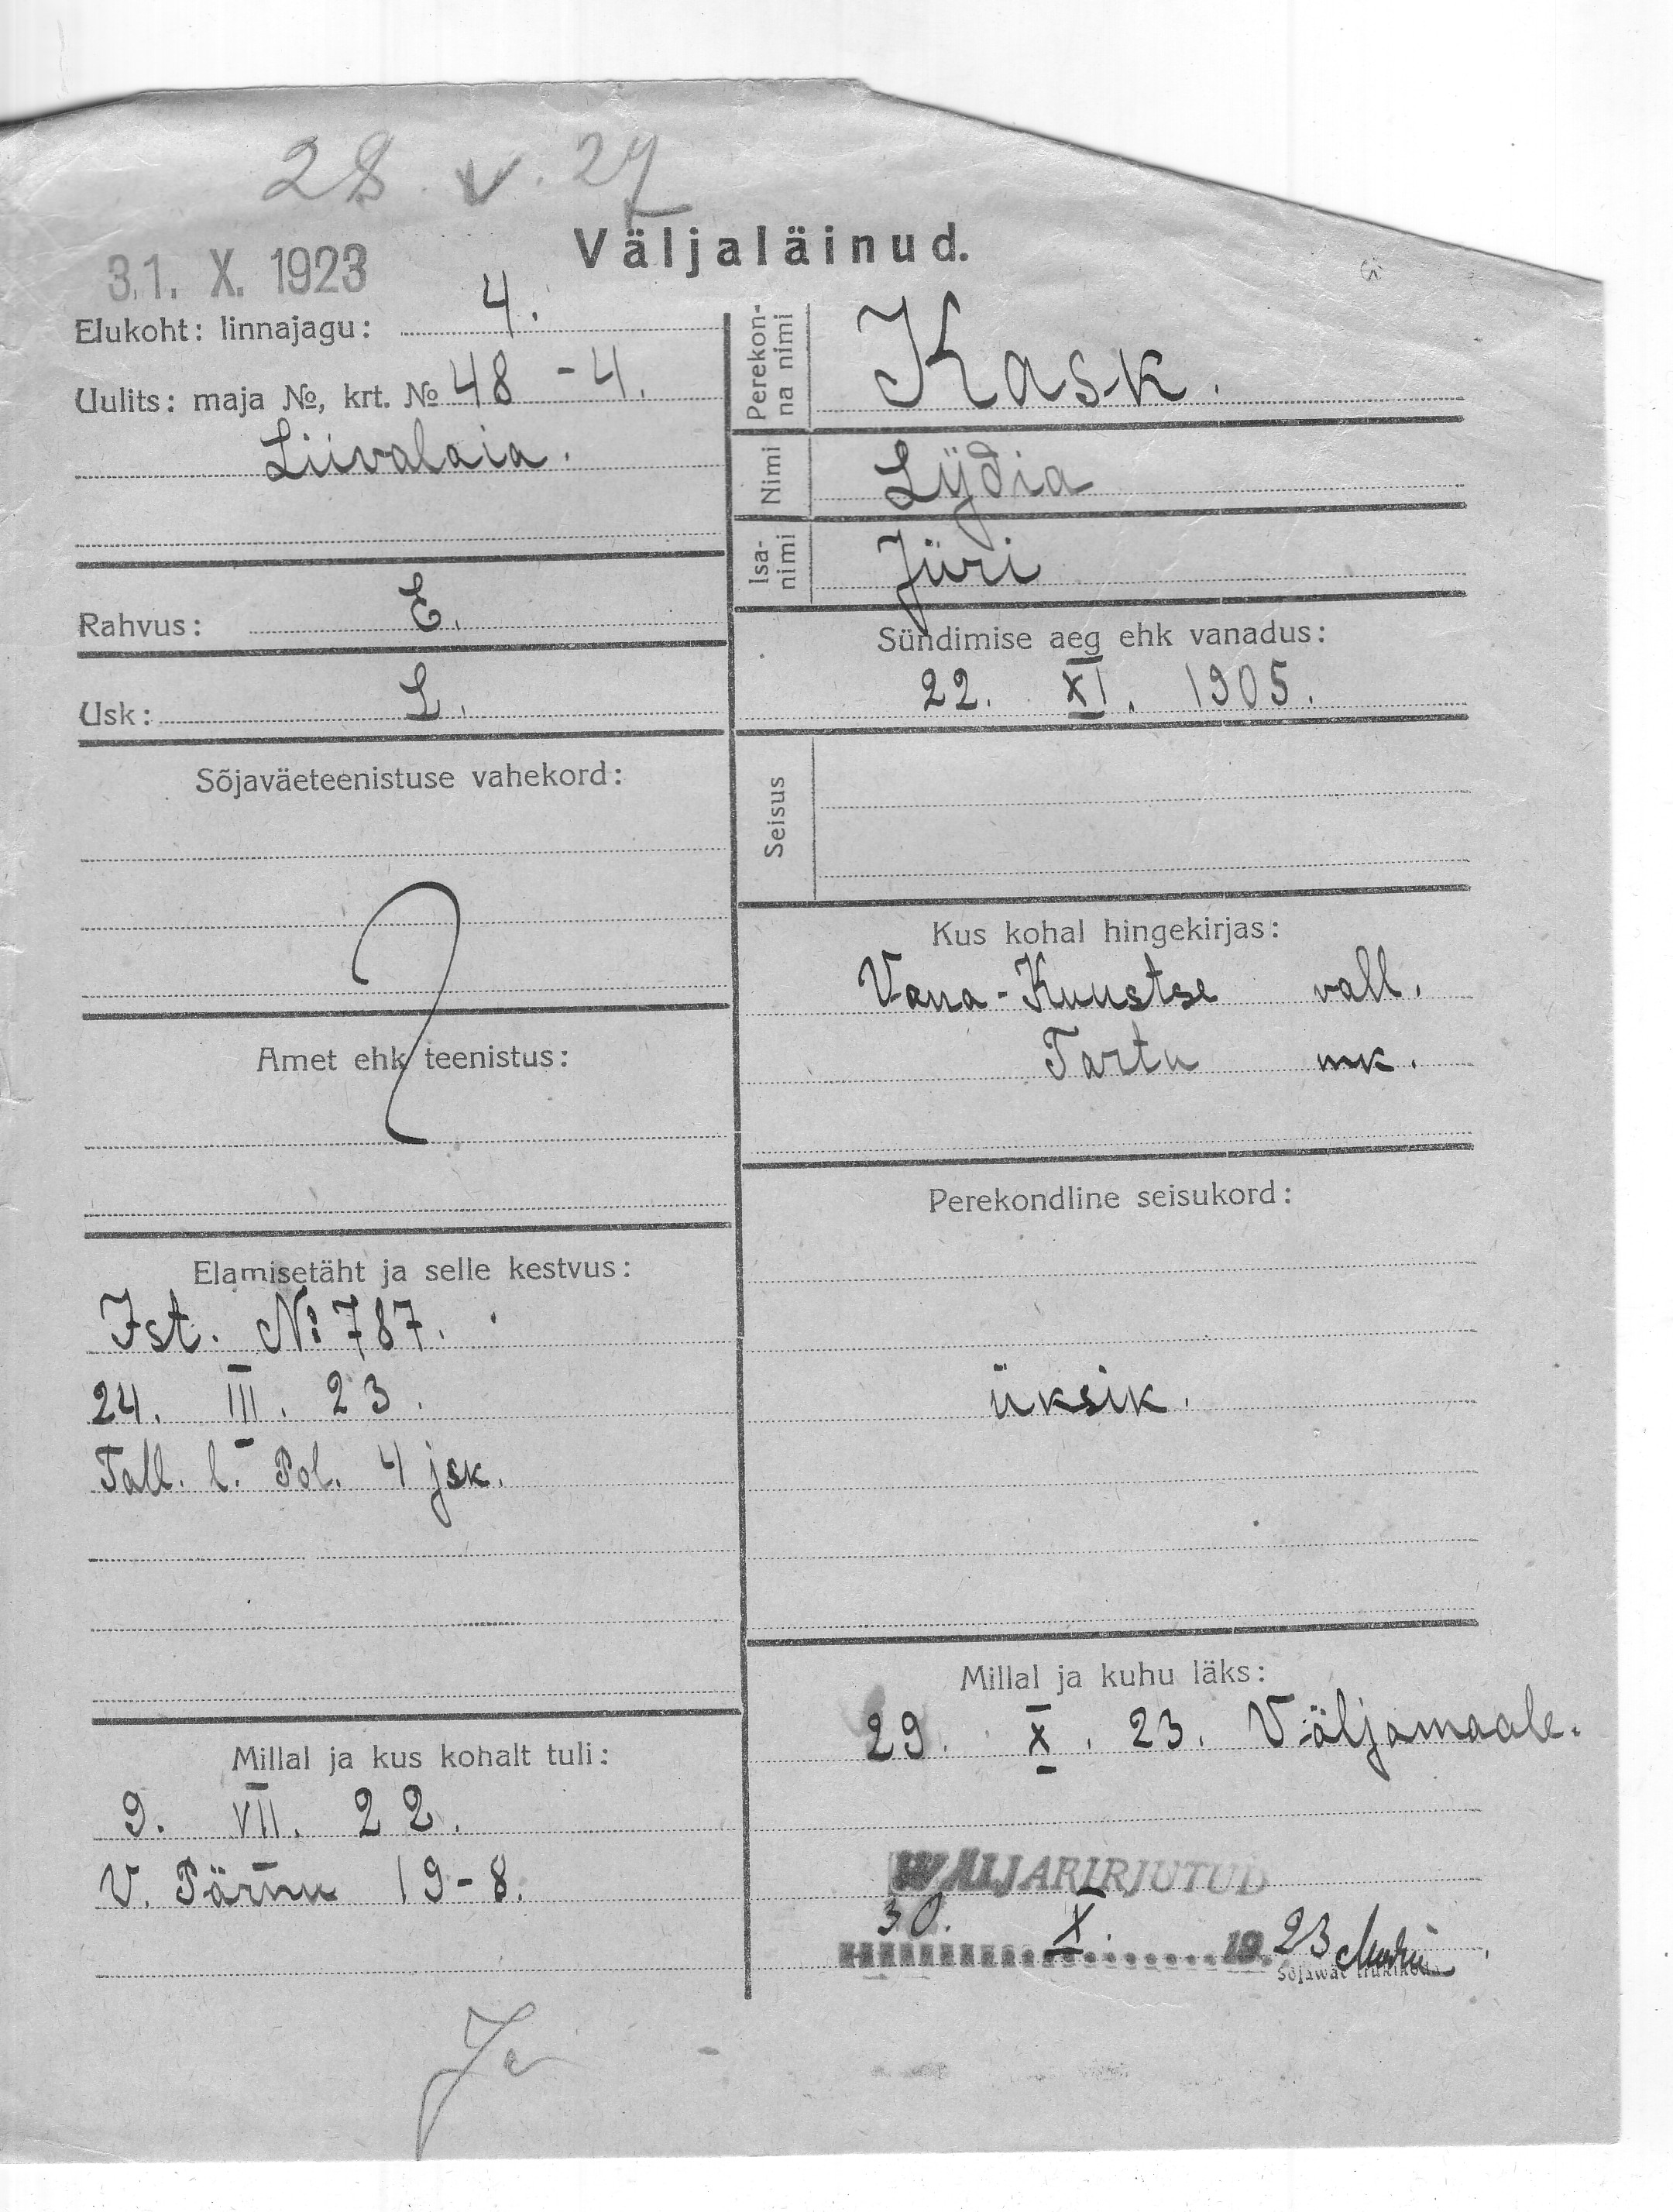 28. V. 27
Väljaläinud.
31. X. 1923
Elukoht: linnajagu: 4.
Uulits: maja №, krt. № 48 - 4.
Liivalaia.
Rahvus: E.
Usk: L.
Sõjaväeteenistuse vahekord:
Amet ehk teenistus:
Elamisetäht ja selle kestvus:
Ist. № 787.
24. III. 23.
Tall. l. Pol. 4 jsk.
Millal ja kus kohalt tuli:
9. VII. 22.
V. Pärnu 19-8.
Perekon-
na nimi
Kask.
Nimi
Lÿdia
Isa-
nimi
Jüri
Sündimise aeg ehk vanadus:
22. XI. 1905.
Seisus
Kus kohal hingekirjas:
Vana-Kuustse vall.
Tartu mk.
Perekondline seisukord:
üksik.
Millal ja kuhu läks:
29. X. 23. Väljamaale.
WÄLJAKIRJUTUD
30. X. 1923
Sõjawäe trükikoda